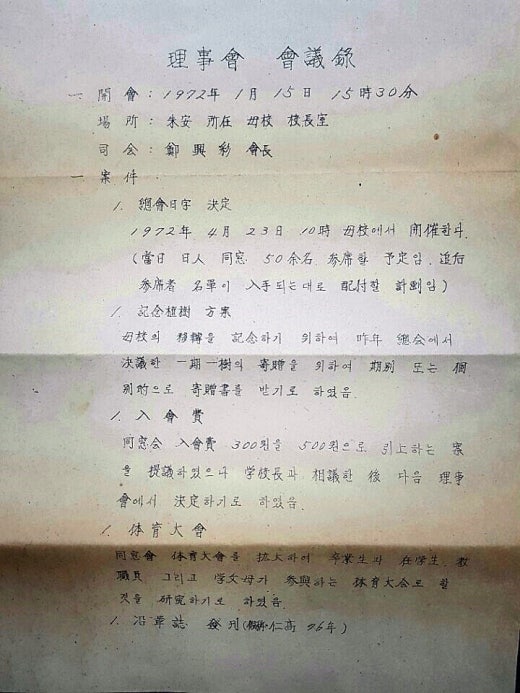 理事會 會議錄
一. 開會 : 1972年 1月 15日 15時30分
場所 : 朱安 所在 母校 校長室
司会 : 鄭興彩 會長
一. 案件
1. 總會日字 決定
1972年 4月 23日 10時 母校에서 開催한다.
(當日 日人 同窓 50余名 参席할 予定임. 追后
参席者 名單이 入手되는대로 配付할 計劃임)
1. 記念植樹 方案
母校의 移轉을 記念하기 위하여 昨年 總会에서
決議한 一期一樹의 寄贈을 위하여 期別 또는 個
別的으로 寄贈書를 받기로 하였음.
1. 入會費
同窓会 入會費 300원을 500원으로 引上하는 案
을 提議하였으나 学校長과 相議한 後 다음 理事
會에서 決定하기로 하였음.
1. 体育大會
同窓會 体育大會를 拡大하여 卒業生과 在学生, 教
職員 그리고 学父母가 参與하는 体育大会로 할
것을 研究하기로 하였음.
1. 沿革誌 發刊 (仁高 76年)